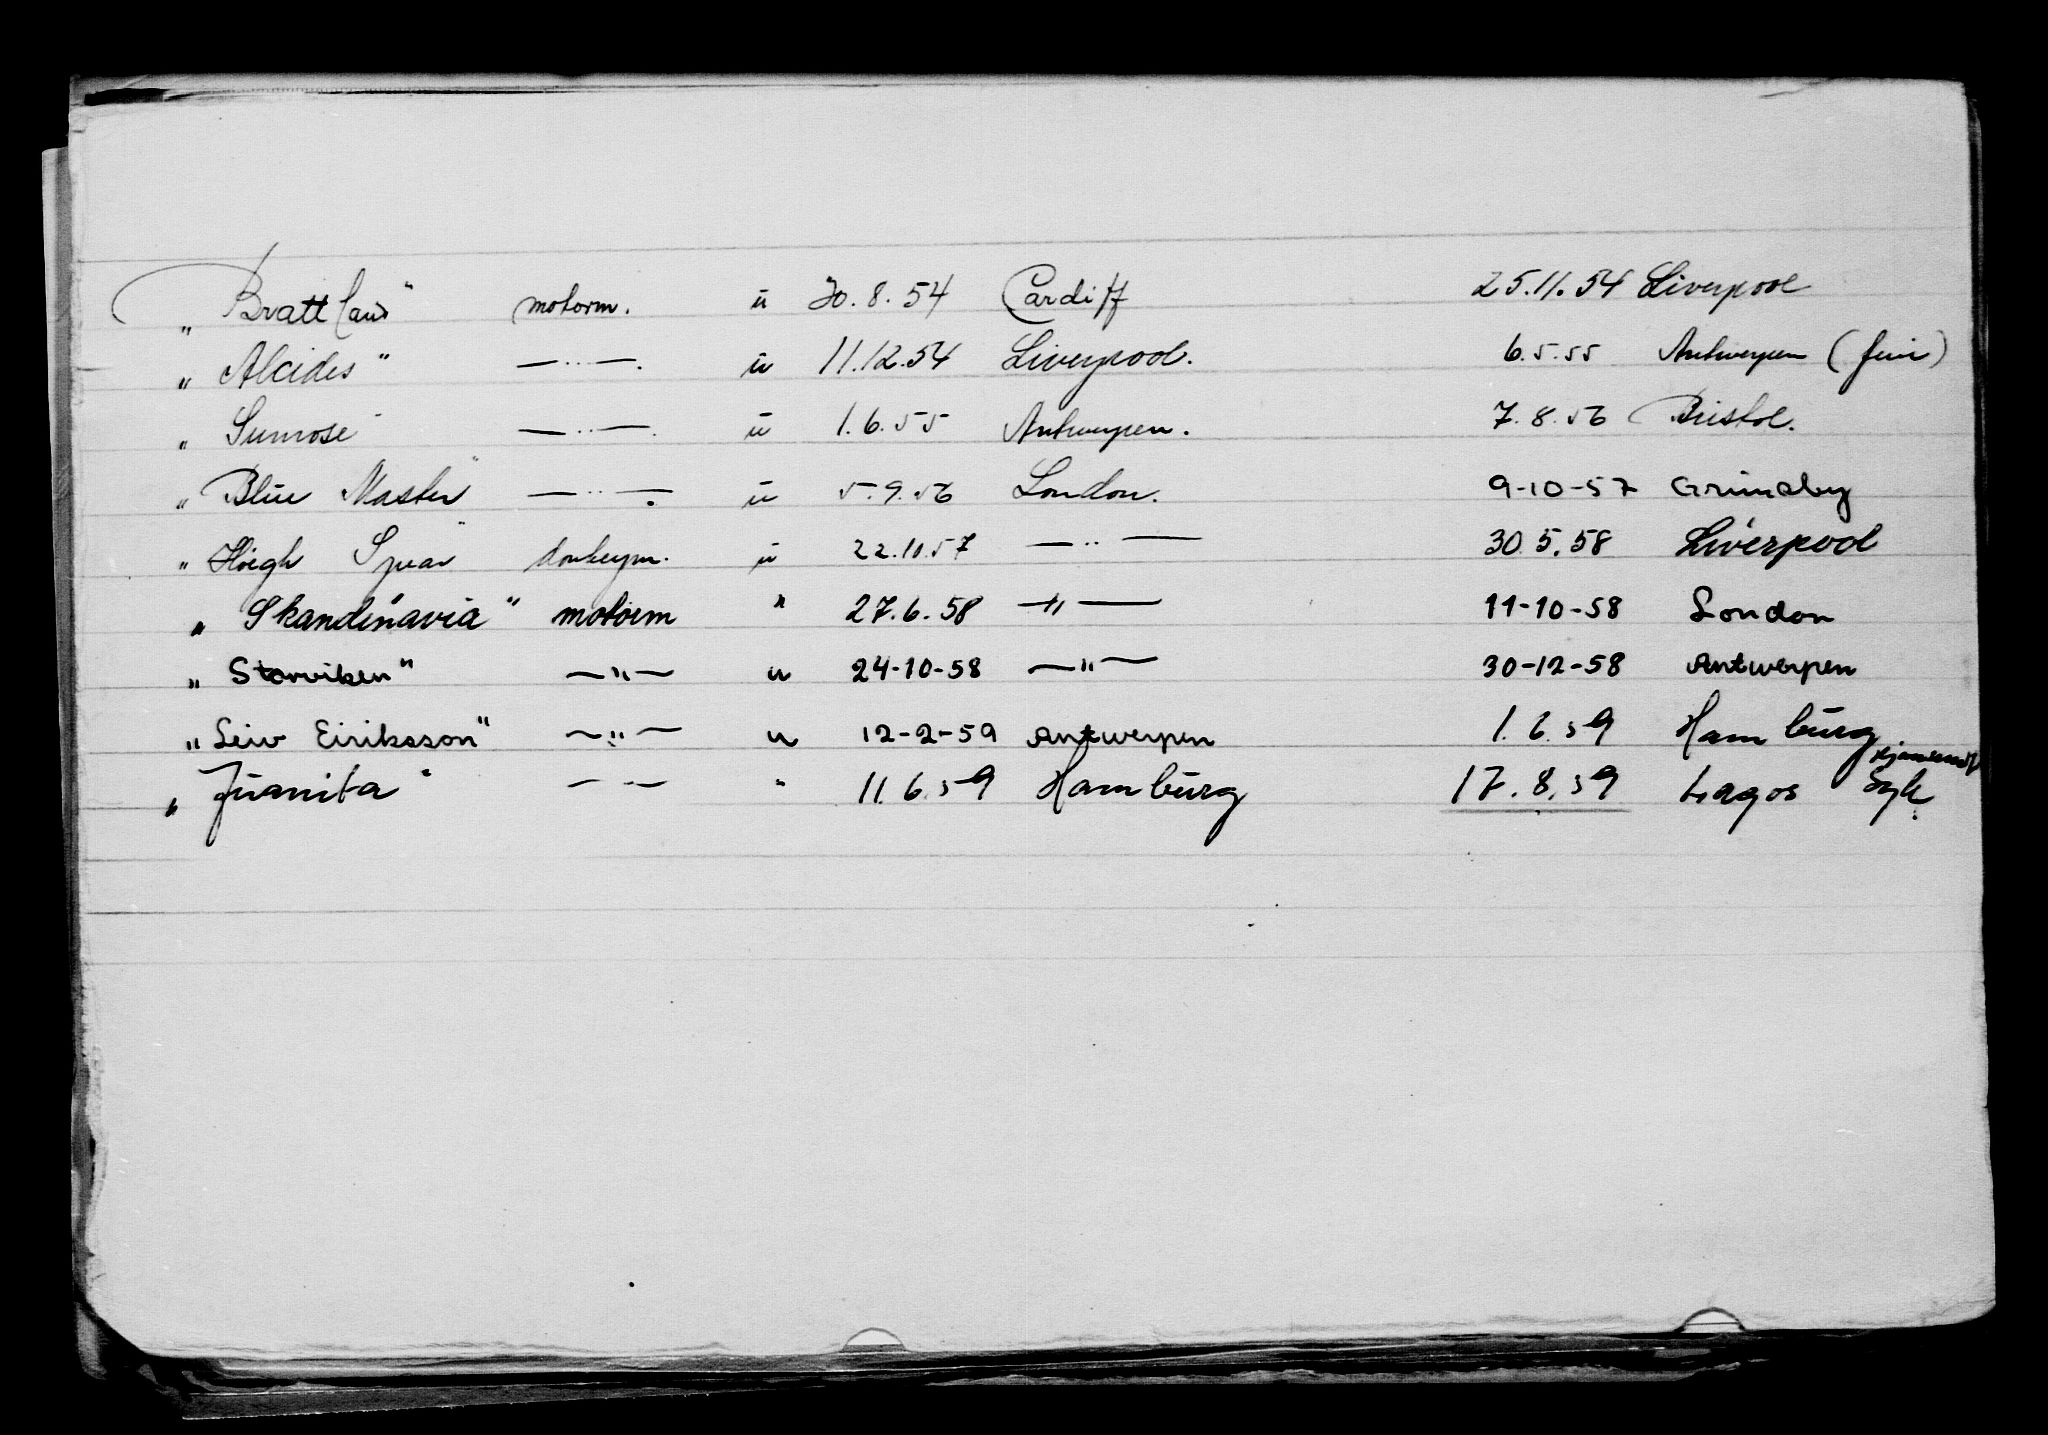 „ Brattland" motorm. u 30.8.54 Cardiff 25.11.54 Liverpool
„ Alcides" —"—. u 11.12.54 Liverpool. 6.5.55 Antwerpen (
„ Sunrose —"—. u 1.6.55 Antwerpen. 7.8.56 Bristol.
„ Blue Master" —"—. u 5.9.56 London. 9-10-57 Grimsby
„ Höegh Spear" donkeym. u 22.10.57 —"— 30.5.58 Liverpool
„ Skandinavia" motorm " 27.6.58 —"— 11-10-58 London
„ Storviken" —"— u 24-10-58 —"— 30-12-58 Antwerpen
„ Leiv Eiriksson" —"— u 12-2-59 Antwerpen 1.6.59 Hamburg
„ Juanita" — — " 11.6.59 Hamburg 17.8.59 Lagos hjemsendt syk.